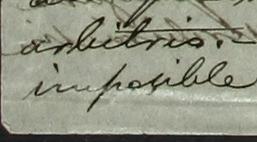 arbitrio.
imposible